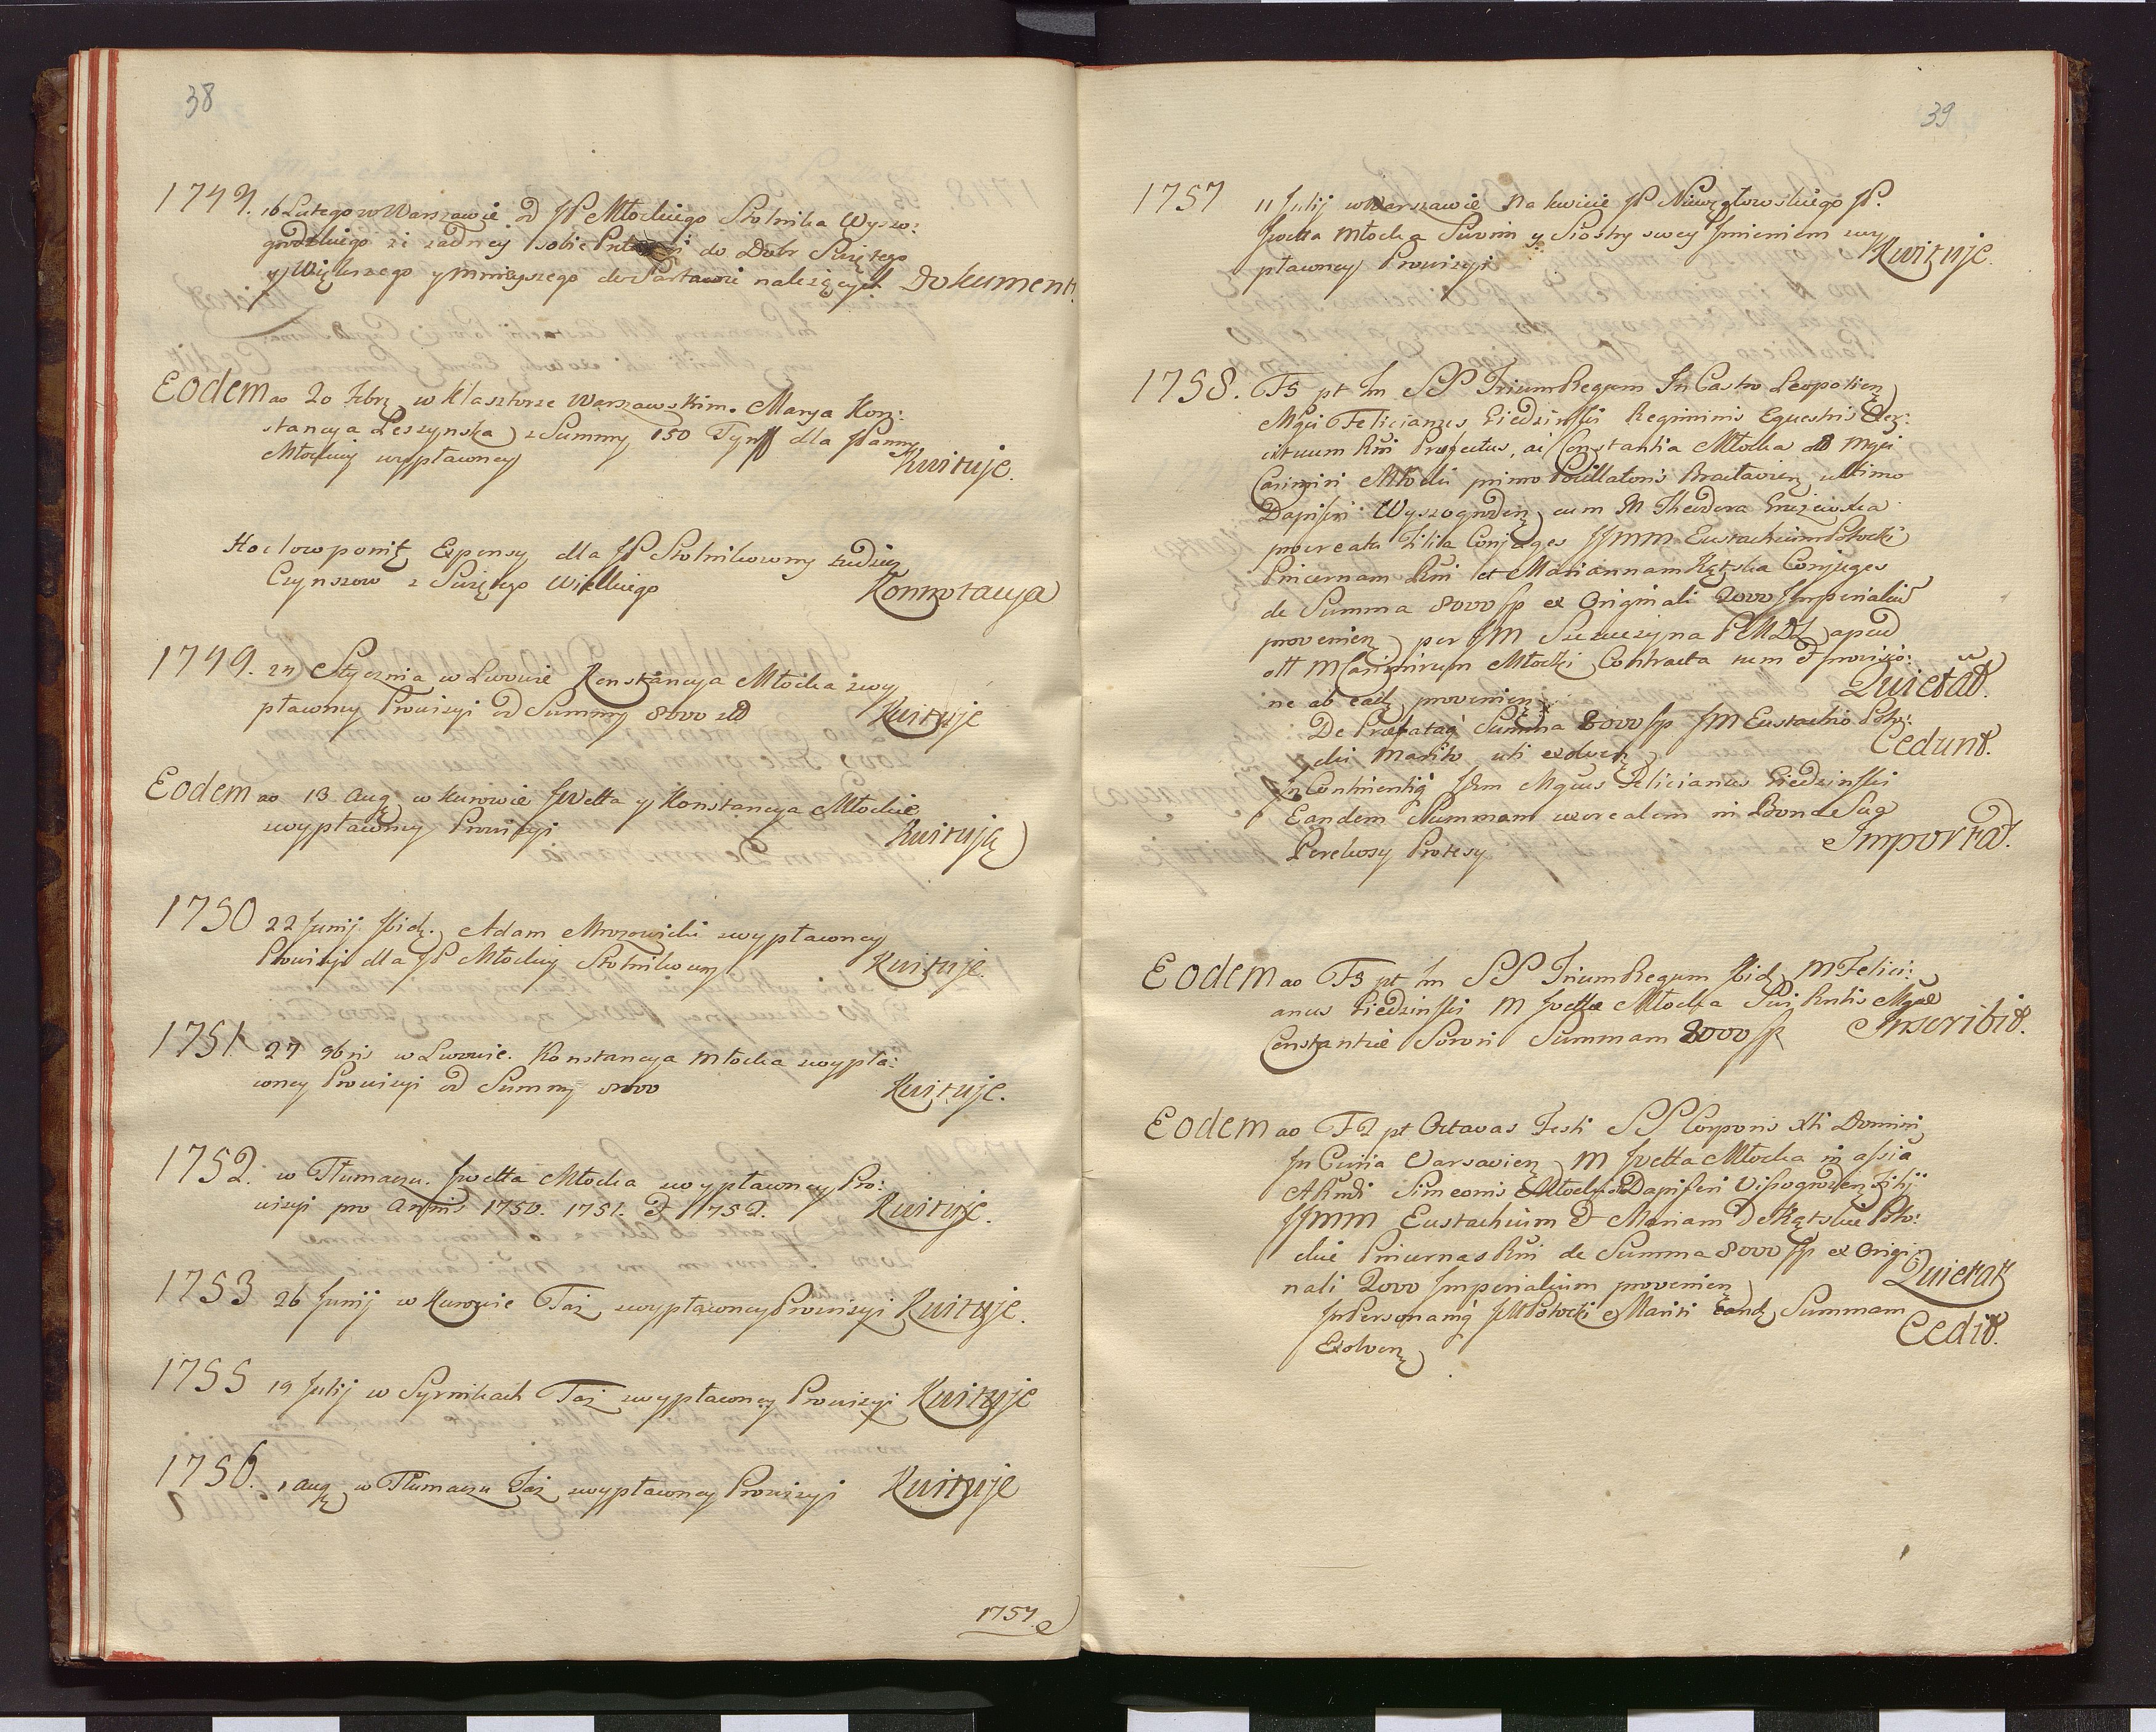 38
1744. 16 Lutego w Warszawie od JP Młockiego Stolnika Wyszo:
grodzkiego iż żadney sobie do Dobr Surzętego
y Większego y Mnieyszego do Sortowie należących Dokument.
Eodem ao 20 Xbrz w Klasztorze Warszawskim. Marya Kon:
stancya Leszynska z Summy 150 Tynff dla Panny
Młockiey wypłaconey Kwituje.
Expensy dla JP Stolnikowny tudziez
Czynszow z Surzętego Wielkiego Konnotacya
1749. 24 Stycznia w Lwowie Konstancya Młocka z wy
płaconey Prowizyi od Summy 8000 zł Kwituje
Eodem ao 13 Aug w Kurowie Jwetta y Konstancya Młockie
z wypłaconey Prowizyi Kwitują
1750 22 Junij Ibid. Adam Mrozowicki z wypłaconey
Prowizyi dla JP Młockiey Stolnikowny Kwituje.
1751. 27 9bris w Lwowie. Konstancya Młocka z wypła:
coney Prowizyi od Summy 8000 Kwituje.
1752. w Tłumaczu. Jwetta Młocka z wypłaconey Pro:
wizyi pro Annis 1750. 1751. et 1752. Kwituje.
1753 26 Junij w Kurowie Taż z wypłaconey Prowizyi Kwituje.
1755 19 Julij w Syrnikach Taż z wypłaconey Prowizyi Kwituje
1756. 1 Aug w Tłumaczu Taż z wypłaconey Prowizyi Kwituje
1757
39
1757 11 Julij w Warszawie Na kwicie JP Niewęgłowskiego JP.
Jwetta Młocka Swoim y Siostry swey Jmieniem z wy
płaconey Prowizyi Kwituje.
1758. F5 pt In SS Trium Regum In Castro Leopolien
Mgci Felicianus Siedzinski Regiminis Equestris Exer:
cituum Rni Praefectus, ac Constantia Młocka olt Mgci
Casimiri Młocki primo Pocillatoris Bracłavien ultimo
Dapiferi Wyszogroden cum M Theodora
procreata Filia Conjuges JJMM Eustachium Potocki
Pincernam Rni et Mariannam Kątska Conjuges
de Summa 8000 fp ex Originali 2000 Imperialium
provenien per JM apud
olt M Casimirum Młocki Contracta tum et provisio:
ne ab eadz provenien Quietat.
De Praefataq Summa 8000 fp JM Eustachio Poto:
cki Marito uti exolven Cedunt.
In Continentiq Idem Mgcus Felicianus Siedzinski
Eandem Summam uxorealem in Bona Sua
Perekosy Protesy Importat.
Eodem ao F5 pt In SS Trium Regum Ibidz M Felici:
anus Siedzinski M Jvetta Młocka Suae
Constantiae Sorori Summam 8000 fp Inscribit.
Eodem ao F2 pt Octavas Festi SS Corporis Xti Domini
In Curia Varsavien M Jvetta Młocka in assia
Simeonis Młocki Dapiferi Vissogroden Filij
JJMM Eustachium et Mariam de Kątskie Poto:
ckie Pincernas Rni de Summa 8000 fp ex Origi:
nali 2000 Imperialium provenien Quietat
In Personamq JM Potocki Mariti Eandz Summam
Exolven Cedit.